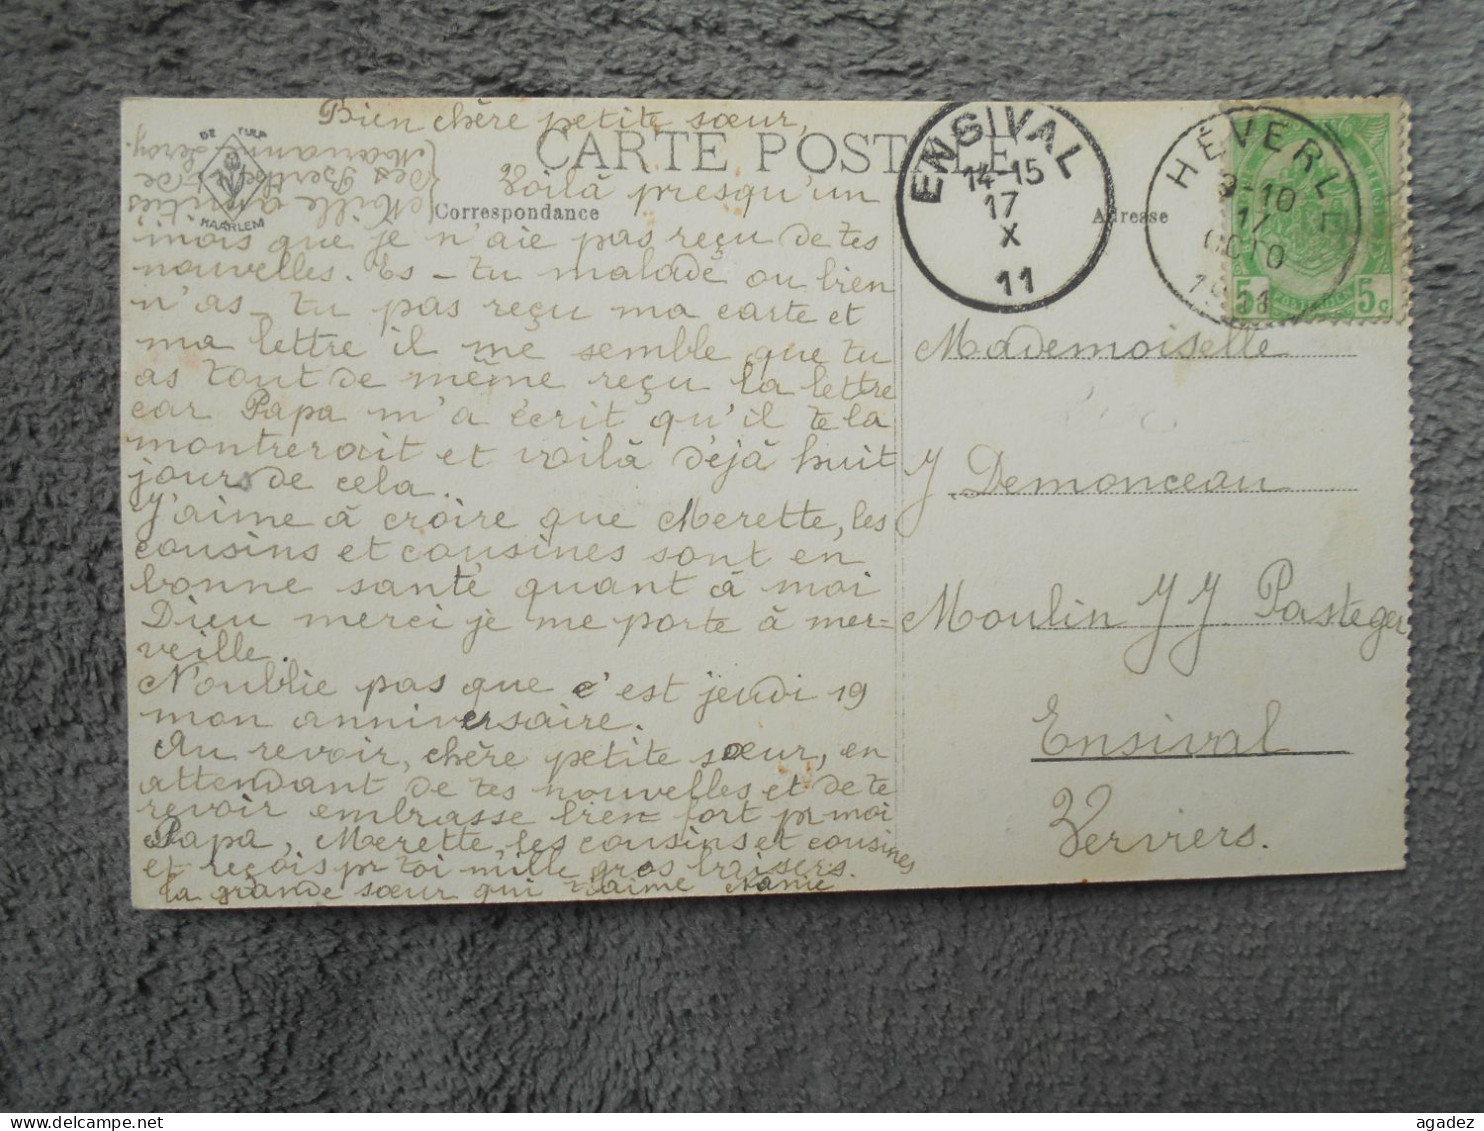 Bien chère petite sœur,
CARTE POSTALE
DE TULP
HAARLEM
Mille amitiés
des Berthe et de
Marianne Leroy.
Correspondance
Adresse
Voilà presqu'un
mois que je n'aie pas reçu de tes
nouvelles. Es-tu malade ou bien
n'as-tu pas reçu ma carte et
ma lettre il me semble que tu
as tout de même reçu la lettre
car Papa m'a écrit qu'il te la
montrerait et voilà déjà huit
jour de cela.
J'aime à croire que Merette, les
cousins et cousines sont en
bonne santé quant à moi
Dieu merci je me porte à mer-
veille.
N'oublie pas que c'est jeudi 19
mon anniversaire.
Au revoir, chère petite sœur, en
attendant de tes nouvelles et de te
revoir embrasse bien fort pr moi
Papa, Merette, les cousins et cousines
et reçois pr toi mille gros baisers.
ta grande sœur qui t'aime
ENSIVAL
14-15
17
X
11
HÉVERLÉ
9-10
17
OCTO
1911
5c 5c
Mademoiselle
J Demonceau
Moulin J J Pasteger
Ensival
Verviers.
delcampe.net
agadez